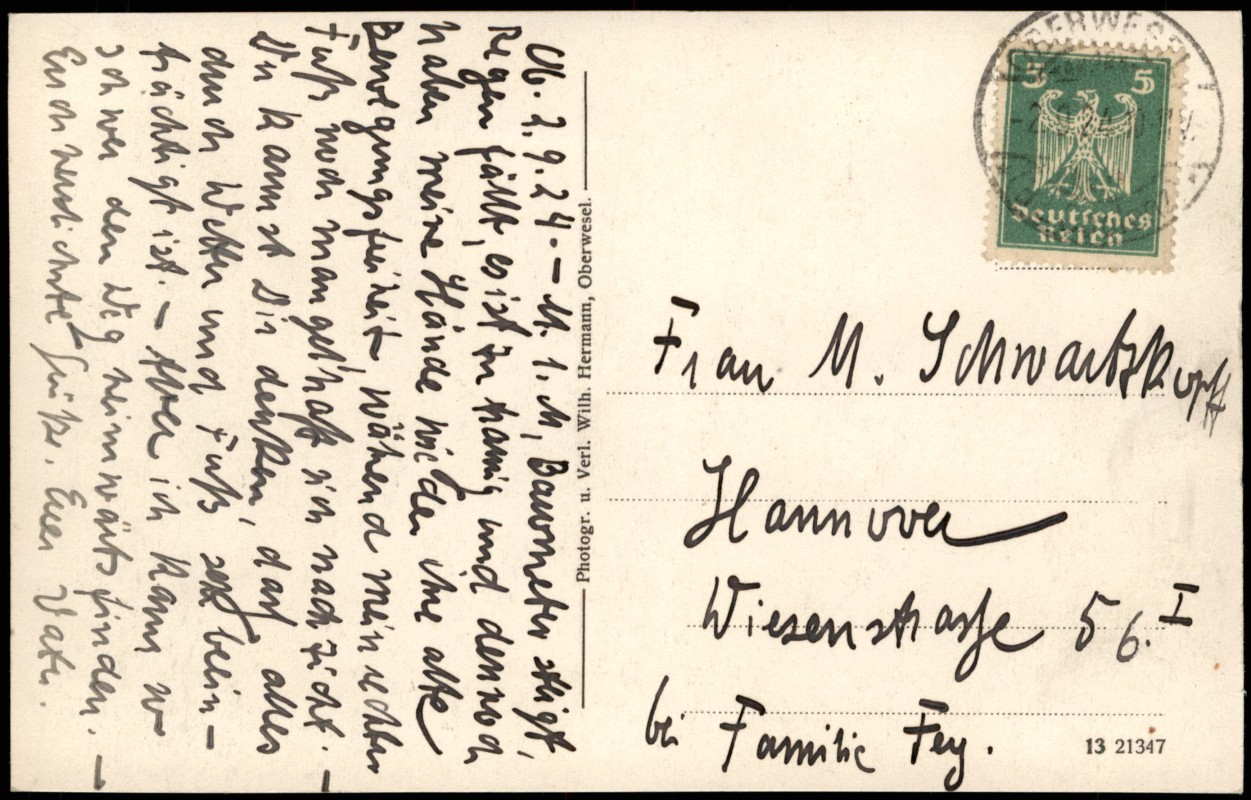 Ob. 2.9.24. – M. l. M, Barometer steigt,
Regen fällt, es ist und dennoch
haben meine Hände wieder ihre alte
Bewegungsfreiheit, während mein rechter
Fuß noch mangelhaft sich nachzieht. –
Du kannst Dir denken, daß alles
durch Wetter und Fuß sehr beein-
trächtigt ist. – Aber ich kann
schwer den Weg heimwärts finden. –
Euch herzlichste Grüße. Euer Vater.
Photogr. u. Verl. Wilh. Hermann, Oberwesel.
OBERWESEL
5 5
Deutsches
Reich
Frau M. Schwartzkopff
Hannover
Wiesenstrasse 56. I
bei Familie Fey.
13 21347